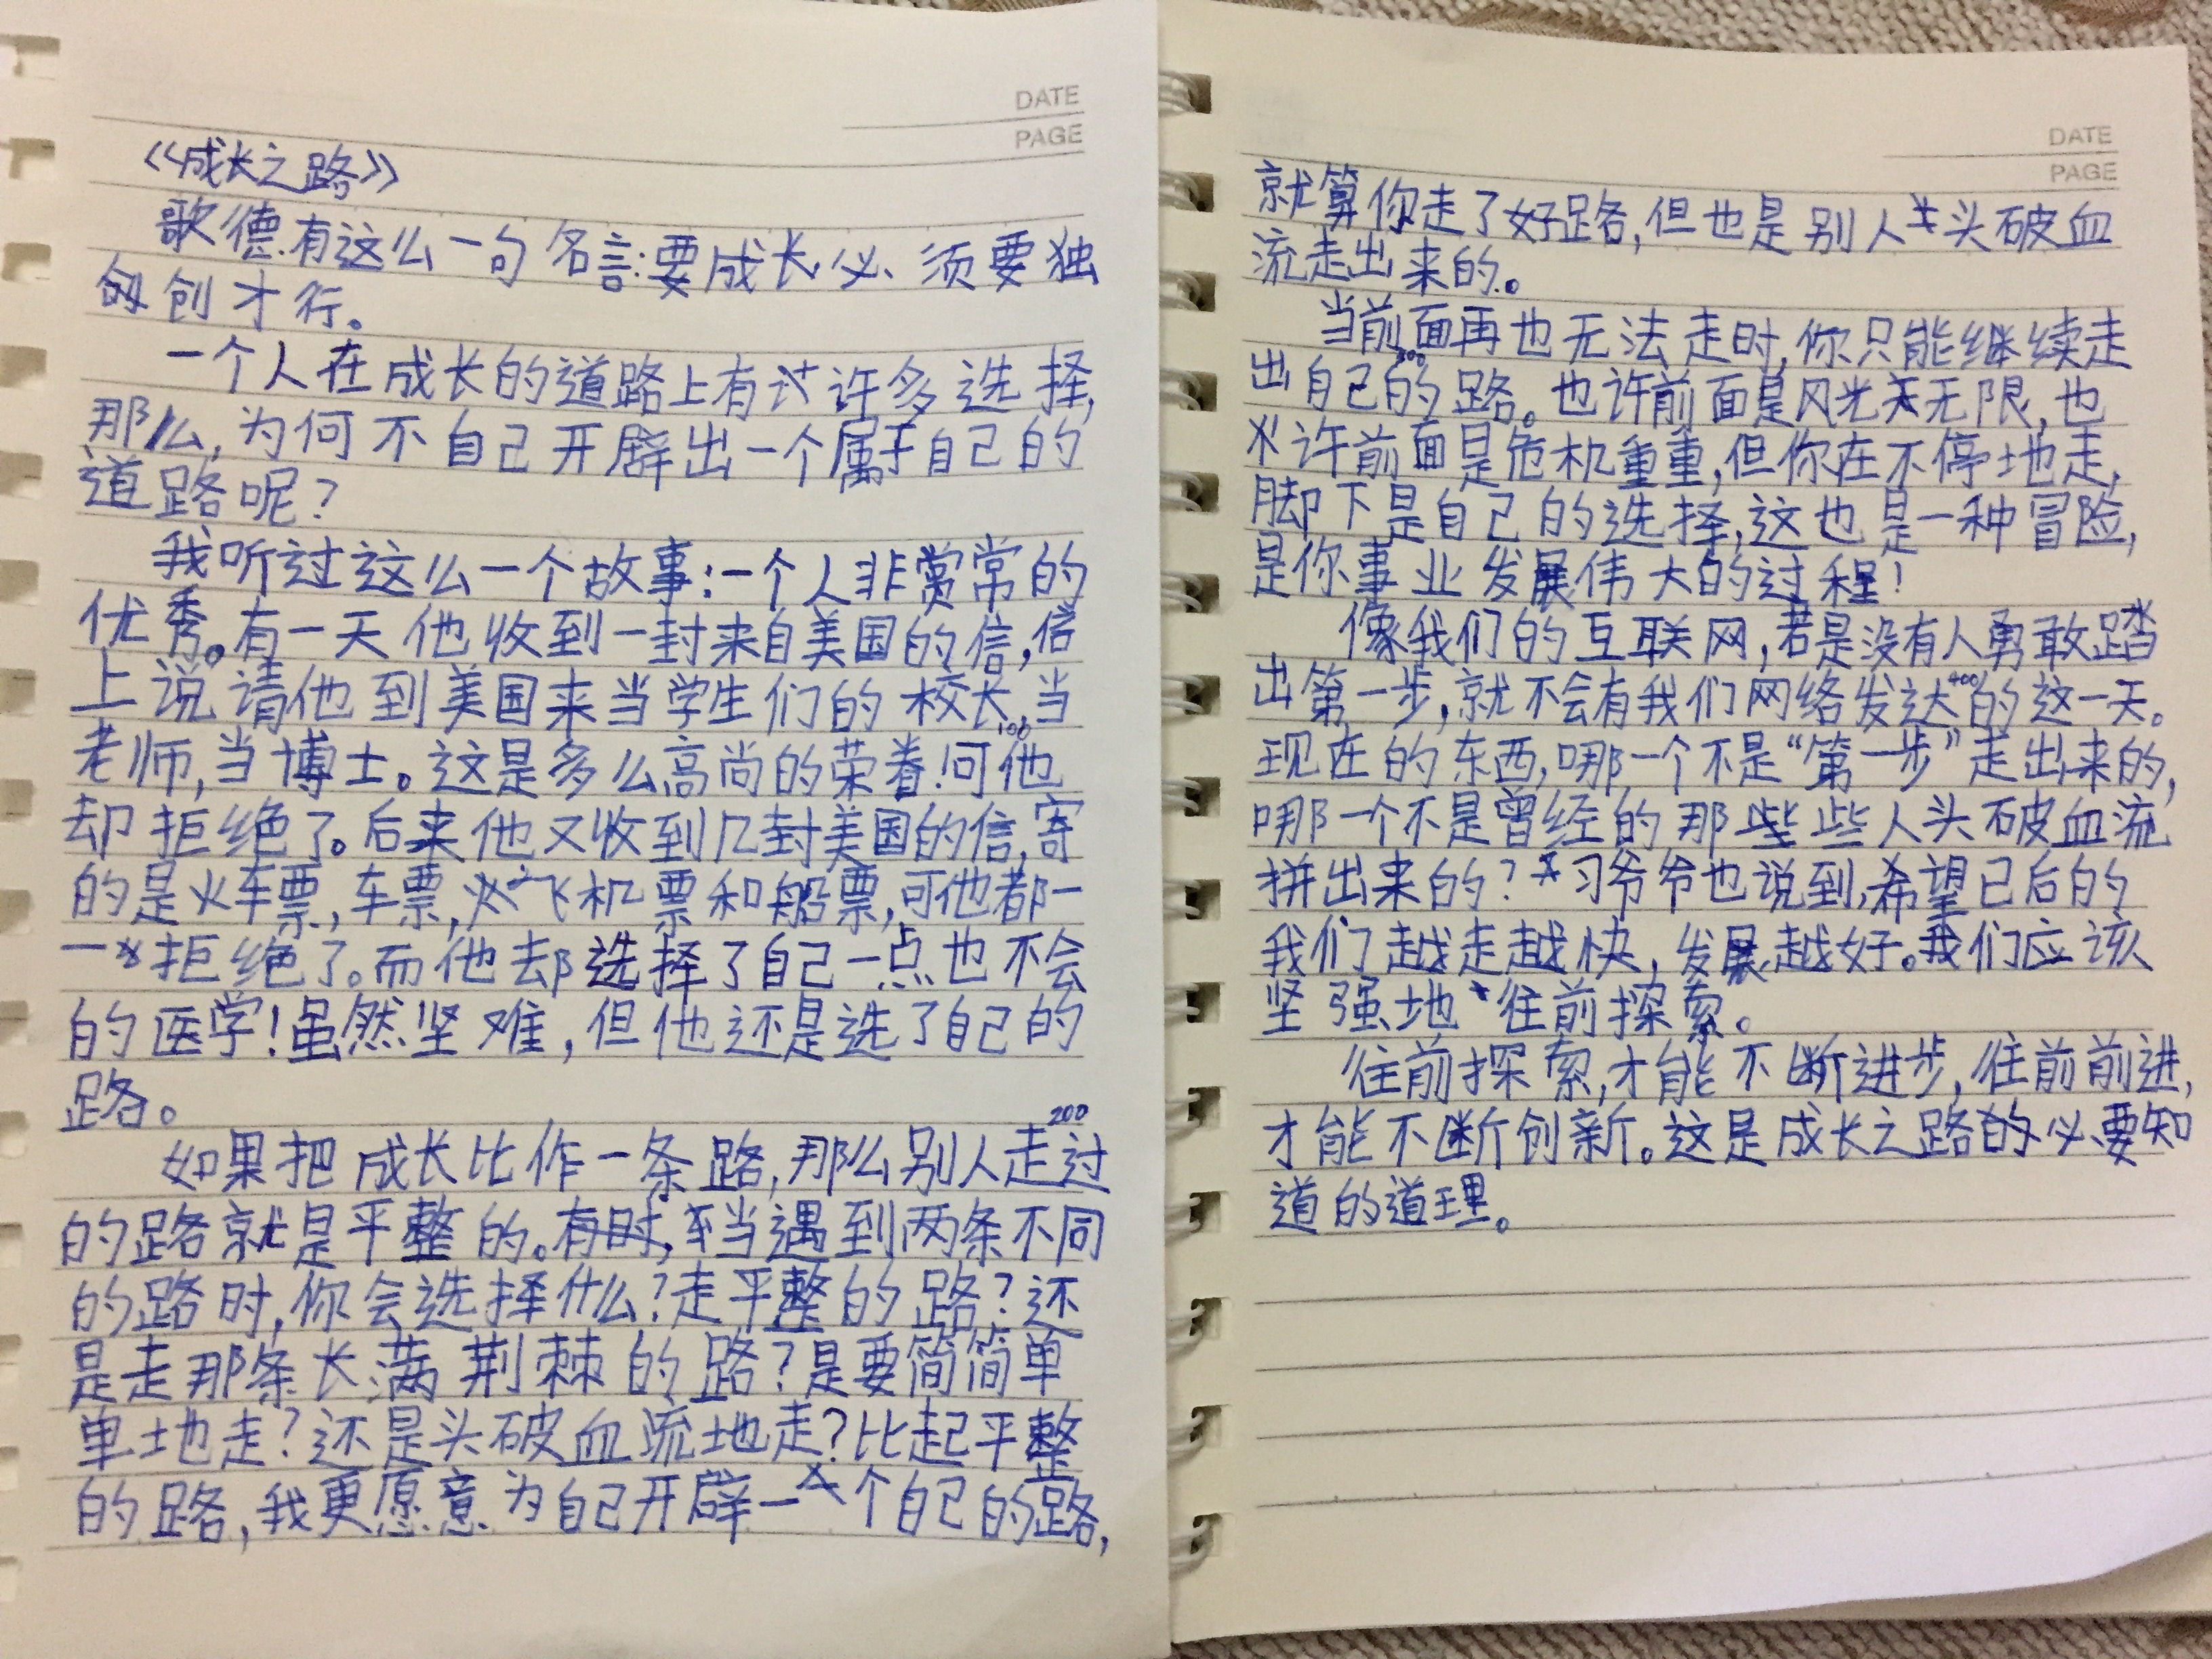 DATE
PAGE
《成长之路》
歌德有这么一句名言:要成长必须要独
创才行。
一个人在成长的道路上有许多选择,
那么,为何不自己开辟出一个属于自己的
道路呢?
我听过这么一个故事:一个人非常的
优秀。有一天他收到一封来自美国的信,信
上说请他到美国来当学生们的校长,当
100
老师,当博士。这是多么高尚的荣眷!可他
却拒绝了。后来他又收到几封美国的信,寄
的是火车票,车票,飞机票和船票,可他都一
一拒绝了。而他却选择了自己一点也不会
的医学!虽然坚难,但他还是选了自己的
路。
200
如果把成长比作一条路,那么别人走过
的路就是平整的。有时,当遇到两条不同
的路时,你会选择什么?走平整的路?还
是走那条长满荆棘的路?是要简简单
单地走?还是头破血流地走?比起平整
的路,我更愿意为自己开辟一个自己的路,
DATE
PAGE
就算你走了好路,但也是别人头破血
流走出来的。
当前面再也无法走时,你只能继续走
300
出自己的路。也许前面是风光无限,也
许前面是危机重重,但你在不停地走,
脚下是自己的选择,这也是一种冒险,
是你事业发展伟大的过程!
像我们的互联网,若是没有人勇敢踏
400
出第一步,就不会有我们网络发达的这一天。
现在的东西,哪一个不是“第一步”走出来的,
哪一个不是曾经的那些人头破血流
拼出来的?习爷爷也说到,希望已后的
我们越走越快,发展越好。我们应该
坚强地往前探索。
往前探索,才能不断进步,往前前进,
才能不断创新。这是成长之路的必要知
道的道理。